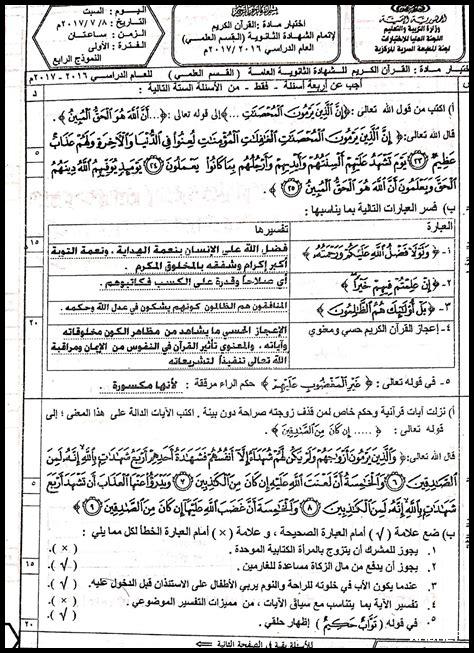 الجمهورية اليمنية
وزارة التربية والتعليم
اللجنة العليا للاختبارات
لجنة المطبعة السرية المركزية
اختبار مادة : القرآن الكريم
لإتمام الشهادة الثانوية (القسم العلمي)
العام الدراسي ٢٠١٦ / ٢٠١٧م
اليوم : السبت
التاريخ : ٢٠١٧/٧/٨م
الزمن : ساعتان
الفترة : الأولى
النموذج الرابع
اختبار مادة : القرآن الكريم للشهادة الثانوية العامة ( القسم العلمي ) للعام الدراسي ٢٠١٦ - ٢٠١٧م
أجب عن أربعة أسئلة - فقط - من الأسئلة الستة التالية :
أ) اكتب من قول الله تعالى: ﴿ إِنَّ الَّذِينَ يَرْمُونَ الْمُحْصَنَتِ ... ﴾ إلى قوله تعالى : ﴿ ... أَنَّ اللَّهَ هُوَ الْحَقُّ الْمُبِينُ ﴾
قال الله تعالى: ﴿ إِنَّ الَّذِينَ يَرْمُونَ الْمُحْصَنَتِ الْغَفِلَتِ الْمُؤْمِنَتِ لُعِنُوا فِي الدُّنْيَا وَالْآخِرَةِ وَلَهُمْ عَذَابٌ
عَظِيمٌ ٢٣ يَوْمَ تَشْهَدُ عَلَيْهِمْ أَلْسِنَتُهُمْ وَأَيْدِيهِمْ وَأَرْجُلُهُم بِمَا كَانُوا يَعْمَلُونَ ٢٤ يَوْمَئِذٍ يُوَفِّيهِمُ اللَّهُ دِينَهُمُ
الْحَقَّ وَيَعْلَمُونَ أَنَّ اللَّهَ هُوَ الْحَقُّ الْمُبِينُ ٢٥ ﴾
٥
ب) فسر العبارات التالية بما يناسبها :
العبارة
تفسيرها
١- ﴿ وَلَوْلَا فَضْلُ اللَّهِ عَلَيْكُمْ وَرَحْمَتُهُ ﴾
فضل الله على الإنسان بنعمة الهداية، ونعمة التوبة
أكبر إكرام وشفقة بالمخلوق المكرم .
١٥
٢- ﴿ إِنْ عَلِمْتُمْ فِيهِمْ خَيْرًا ﴾
أي صلاحاً وقدرة على الكسب فكاتبوهم .
٣- ﴿ بَلْ أُولَئِكَ هُمُ الظَّالِمُونَ ﴾
المنافقون هم الظالمون كونهم يشكون في عدل الله وحكمه .
٤- إعجاز القرآن الكريم حسي ومعنوي
الإعجاز الحسي ما يشاهد من مظاهر الكون مخلوقاته
وآياته . والمعنوي تأثير القرآن في النفوس من الإيمان ومراقبة
الله تعالى تنفيذاً لتشريعاته
٢٠
٥- في قوله تعالى : ﴿ غَيْرِ الْمَغْضُوبِ عَلَيْهِمْ ﴾ حكم الراء مرققة : لأنها مكسورة .
أ) نزلت آيات قرآنية وحكم خاص لمن قذف زوجته صراحة دون بينة . اكتب الآيات الدالة على هذا المعنى ؛ إلى
قوله تعالى : ﴿ ..... إِن كَانَ مِنَ الصَّدِقِينَ ﴾ .
﴿ وَالَّذِينَ يَرْمُونَ أَزْوَاجَهُمْ وَلَمْ يَكُن لَّهُمْ شُهَدَاءُ إِلَّا أَنفُسُهُمْ فَشَهَادَةُ أَحَدِهِمْ أَرْبَعُ شَهَادَاتٍ بِاللَّهِ إِنَّهُ لَمِنَ
الصَّدِقِينَ ٦ وَالْخَامِسَةُ أَنَّ لَعْنَتَ اللَّهِ عَلَيْهِ إِن كَانَ مِنَ الْكَاذِبِينَ ٧ وَيَدْرَؤُا عَنْهَا الْعَذَابَ أَن تَشْهَدَ أَرْبَعَ
شَهَادَاتٍ بِاللَّهِ إِنَّهُ لَمِنَ الْكَاذِبِينَ ٨ وَالْخَامِسَةَ أَنَّ غَضَبَ اللَّهِ عَلَيْهَا إِن كَانَ مِنَ الصَّادِقِينَ ٩ ﴾
٥
ب) ضع علامة (√) أمام العبارة الصحيحة ، و علامة (×) أمام العبارة الخطأ لكل مما يلي :
١. يجوز للمشرك أن يتزوج بالمرأة الكتابية الموحدة . (×)
٢. يجوز أن يدفع من مال الزكاة مساعدة للغارمين . (√)
١٥
٣. عندما يكون الأب في خلوته للراحة والنوم يربي الأطفال على الاستئذان قبل الدخول عليه. (√)
٤. تفسير الآية بما يتناسب مع سياق الآيات ، من مميزات التفسير الموضوعي . (×)
٥. في قوله ( تَوَّابٌ حَكِيمٌ ) إظهار حلقي . (√)
٢٠
للأسئلة بقية في الصفحة التالية